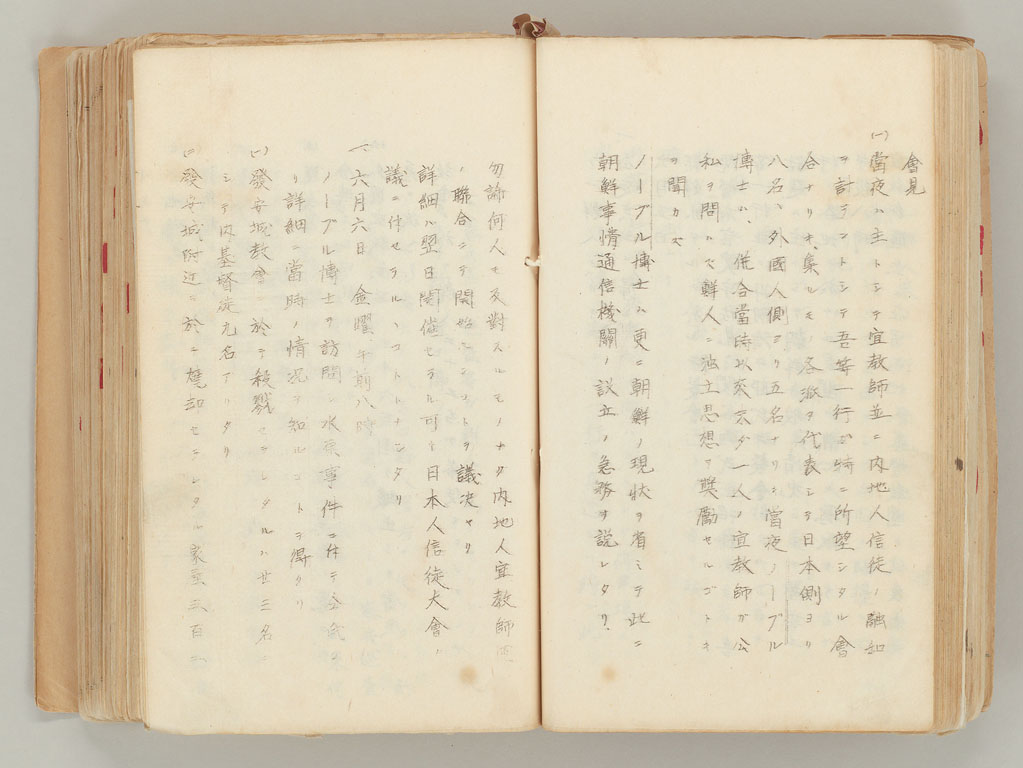 會見
(一)當夜ハ主トシテ宣教師並ニ内地人信徒ノ融和
ヲ計ラントシテ吾等一行ガ特ニ所望シタル會
合ナリキ、集ルモノ各派ヲ代表シテ日本側ヨリ
八名、外國人側ヨリ五名ナリシ當夜ノーブル
博士ハ、併合當時以来未ダ一人ノ宣教師ガ公
私ヲ問ハズ鮮人ニ独立思想ヲ奨勵セルゴトキ
ヲ聞カズ
ノーブル博士ハ更ニ朝鮮ノ現状ヲ省ミテ此ニ
朝鮮事情通信機關ノ設立ノ急務ヲ説レタリ、
勿論何人モ反對スルモノナク内地人宣教師
ノ聯合ニテ開始センコトヲ議決セリ
詳細ハ翌日開催セラル可キ日本人信徒大會ノ
議ニ付セラルヽコトトナレリ
一、六月六日 金曜午前八時
ノーブル博士ヲ訪問シ水原事件ニ付テ
リ詳細ニ當時ノ情況ヲ知ルコトヲ得タリ
(一)發安城教會ニ於テ殺戮セラレタルハ廿三名ニ
シテ内基督徒九名アリタリ
(二)發安城附近ニ於テ燒却セラレタル家屋三百二